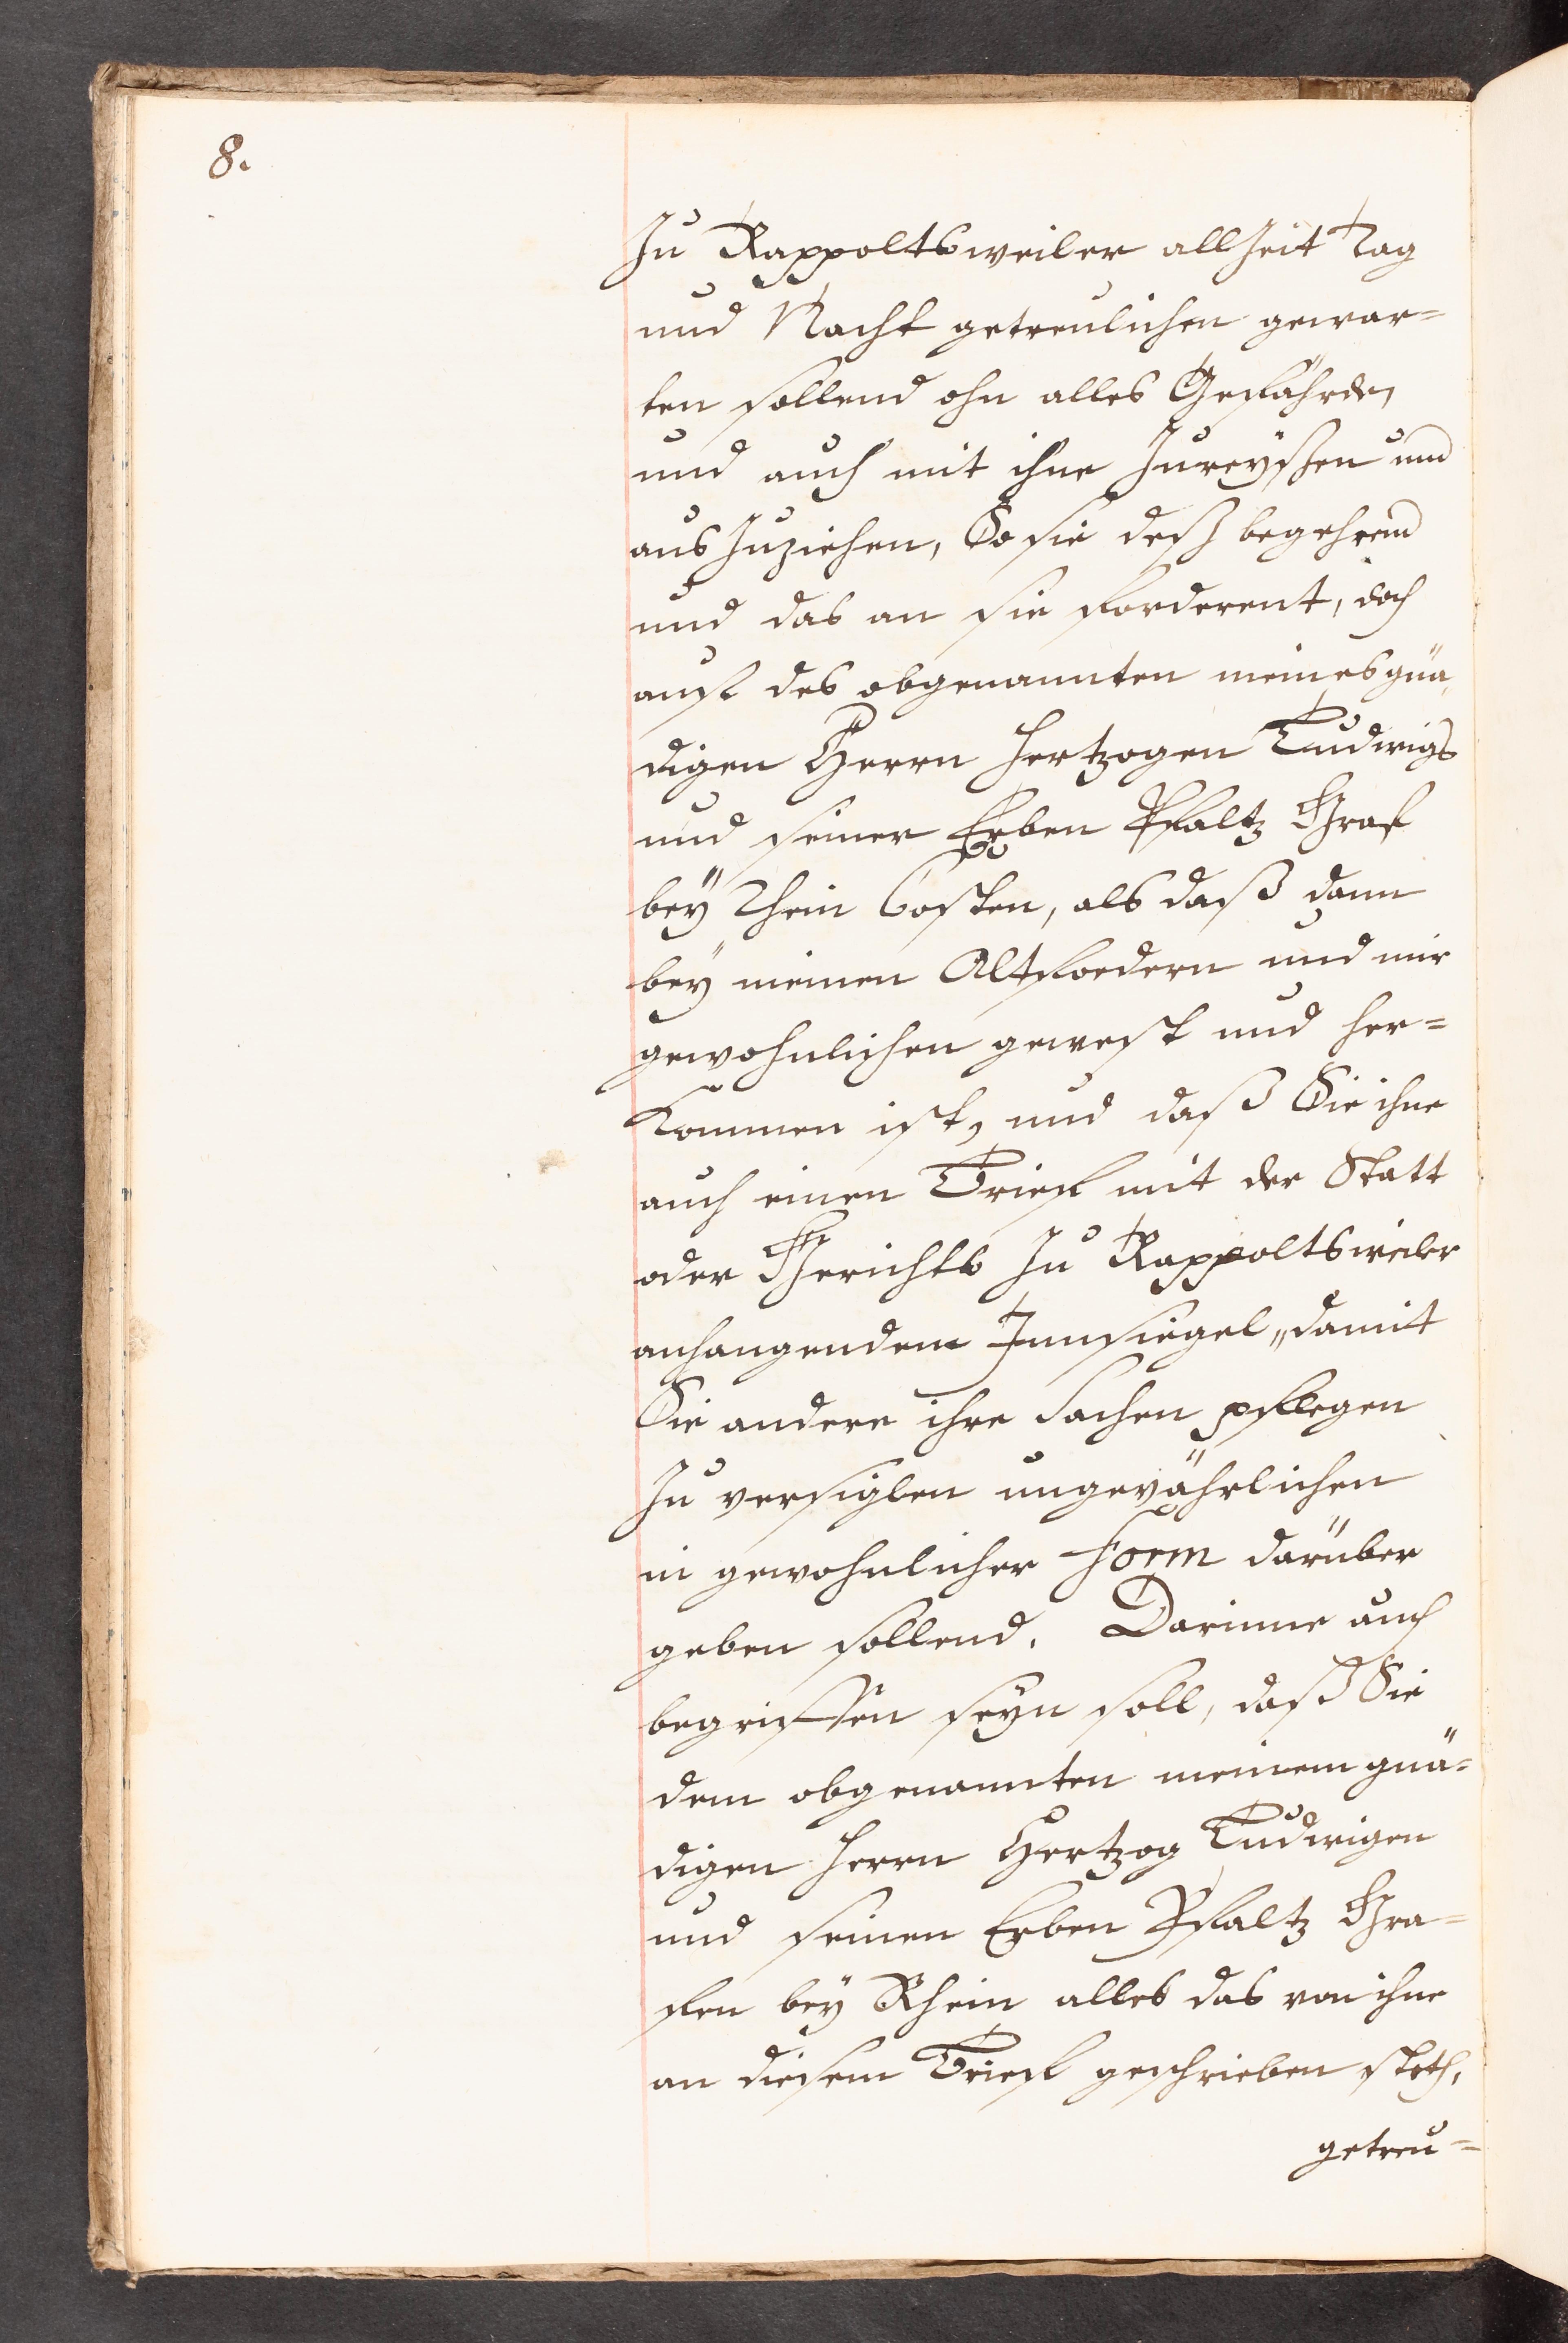 8.
zu Rappoltsweiler allzeit Tag
und Nacht getreulichen gewar=
ten sollend ohn alles Gefährde,
und auch mit ihne zureyßen und
aus zuziehen, So sie deß begehrend
und das an sie forderent, doch
auf des obgenannten meines gnä
digen Herrn Hertzogen Ludwigs
und seiner Erben Pfaltz Graf
bey Rhein Costen, als daß dann
bey meinen Altfordern und mir
gewohnlichen gewest und her=
kommen ist, und daß Sie ihne
auch einen Brief mit der Statt
oder Gerichts zu Rappoltsweiler
anhangendem Innsiegel, damit
Sie andere ihre Sachen pflegen
zu versiglen ungevährlichen
in gewohnlicher Form darüber
geben sollend. Darinne auch
begriffen seyn soll, daß Sie
dem obgenannten meinem gnä=
digen Herrn Hertzog Ludwigen
und seinen Erben Pfaltz Gra=
fen bey Rhein alles das von ihne
an diesem Brief geschrieben steth,
getreu=